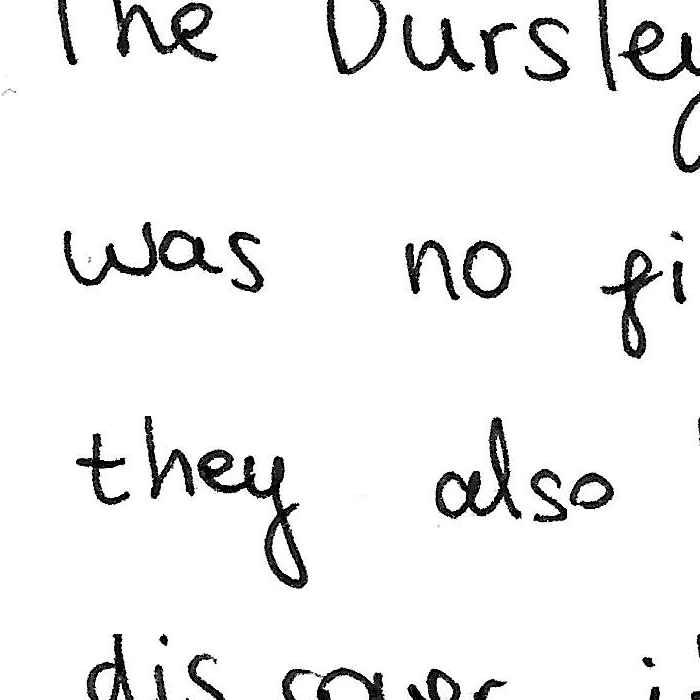 The Dursley
was no fi
they also
discover i